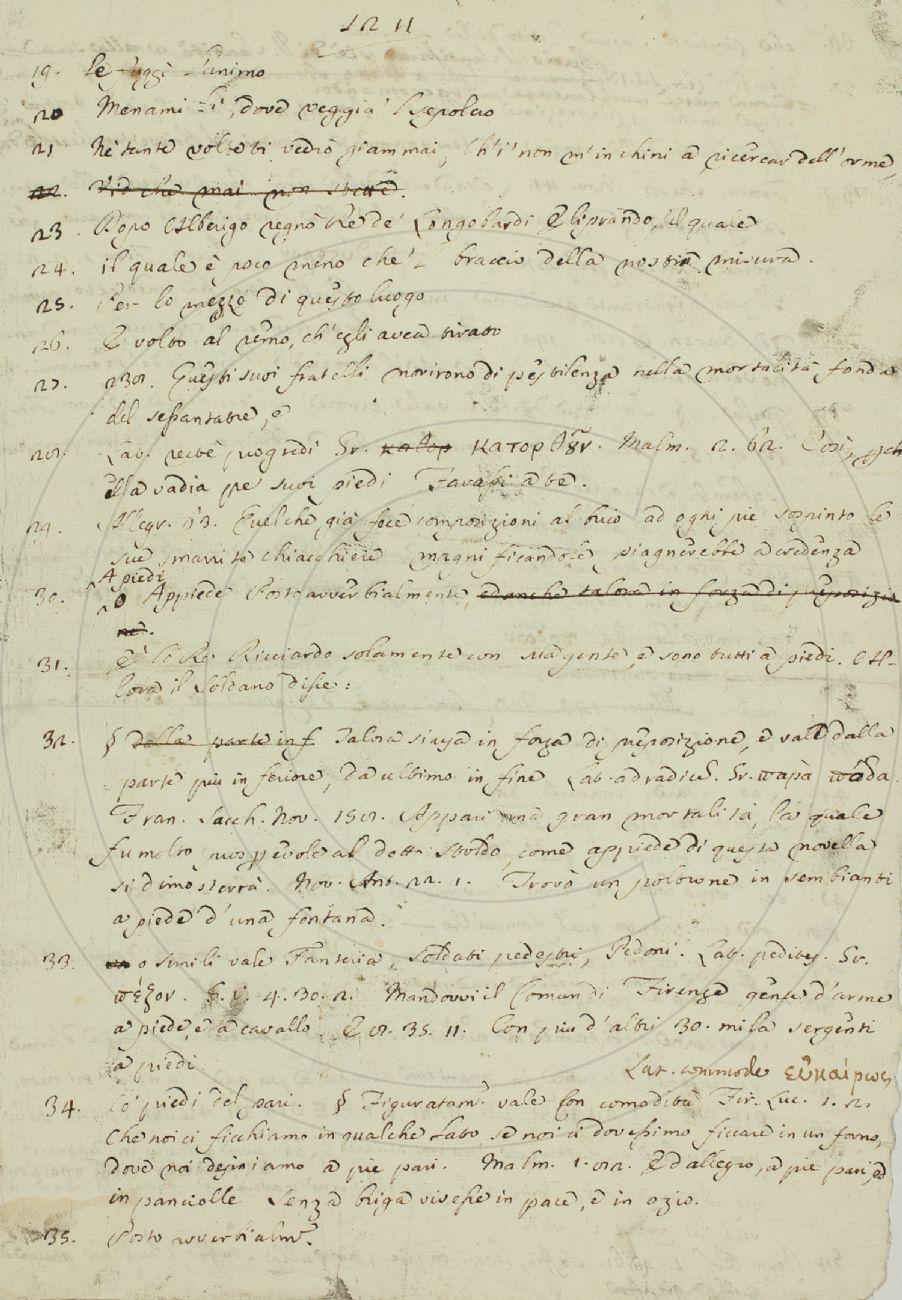 1211
19. le fuggì l'animo
20 Menami lì, dove veggia il sepolcro
21 Nè tante volte ti vedrò giammai, Ch'i' non m'inchini a ricercar dell'orme,
22. Vid che mai non stette.
23. Dopo Alberigo regnò Re de' Longobardi Eliprando, il quale
24. il quale è poco meno che'l braccio della nostra misura.
25. Per lo mezzo di questo luogo
26. E volto al remo, ch'egli avea tirato
27. 238. Questi suoi fratelli morirono di pestilenza nella mortalità fonda
del sessantatre, e
28. Lat. recte progredi Gr. κατορ κατορθȣν. Malm. 2. 62. Così,
ella vadia pe' suoi piedi Favasi a te.
29. Allegr. 13. Quelchè già fece composizioni al buio ad ogni piè sospinto le
sue smarrite chiacchiere magnificandole, piagnerebbe a credenza
A piedi
30. o Appiede Posto avverbialmente, ed anche talora in forza di preposizio
ne.
31. È lo Re Ricciardo solamente con sua gente, e sono tutti a piedi. Al-
lora il Soldano disse:
32. § Dalla parte inf Talora si usa in forza di preposizione, e vale dalla
parte più inferiore, da ultimo in fine Lat. ad radices. Gr. παρὰ πόδα.
Fran. Sacch. Nov. 158. Apparì una gran mortalità, la quale
fu molto prospevole al detto Soldo, come appiede di questa novella
si dimosterrà. Nov. Ant. 22. 1. Trovò un poltrone in sembianti
a piede d'una fontana.
33. o simili vale Fanteria, soldati pedestri, Pedoni. Lat. pedites. Gr.
πέζοι. G. V. 4. 30. 2. Mandovvi il Comun di Firenze gente d'arme
a piede, e a cavallo. E 8. 35. 11. Con più d'altri 30. mila sergenti
a piedi.
Lat. commode εὐκαίρως
34. Co' piedi del pari. § Figuratam. vale Con comodità Fir. Luc. 1. 2.
Che noi ci ficchiamo in qualche lato, se noi ci dovessimo ficcare in un forno,
dove noi desiniamo a piè pari. Malm. 1. 82. Ed allegro, a piè pari, ed
in panciolle Senza briga vivesse in pace, e in ozio.
35. Posto avverbialm.